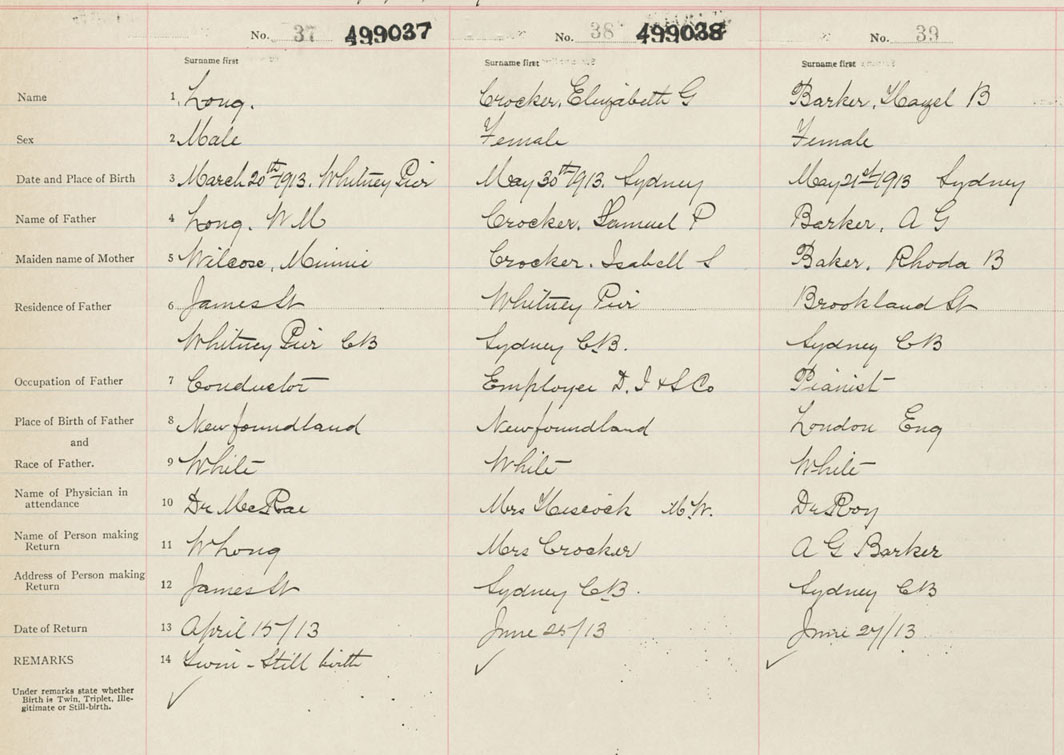 No. 37 499037 No. 38 499038 No. 39
Surname first Surname first Surname first
Name 1 Long. Crocker, Elizabeth G Barker, Hazel B
Sex 2 Male Female Female
Date and Place of Birth 3 March 20th 1913. Whitney Pier May 30th 1913. Sydney May 21st 1913 Sydney
Name of Father 4 Long. W M Crocker. Samuel P Barker, A G
Maiden name of Mother 5 Wilcose, Minnie Crocker. Isabell S Baker. Rhoda B
Residence of Father 6 James St Whitney Pier Brookland St
Whitney Pier CB Sydney C.B. Sydney CB
Occupation of Father 7 Conductor Employee D. I & S Co Pianist
Place of Birth of Father 8 Newfoundland Newfoundland London Eng
and
Race of Father. 9 White White White
Name of Physician in
attendance 10 Dr McRae Mrs Hiscock M.W. Dr Roy
Name of Person making
Return 11 W Long Mrs Crocker A G Barker
Address of Person making
Return 12 James St Sydney C.B. Sydney CB
Date of Return 13 April 15/13 June 25/13 June 27/13
REMARKS 14 Twin - Still birth
Under remarks state whether
Birth is Twin, Triplet, Ille-
gitimate or Still-birth.